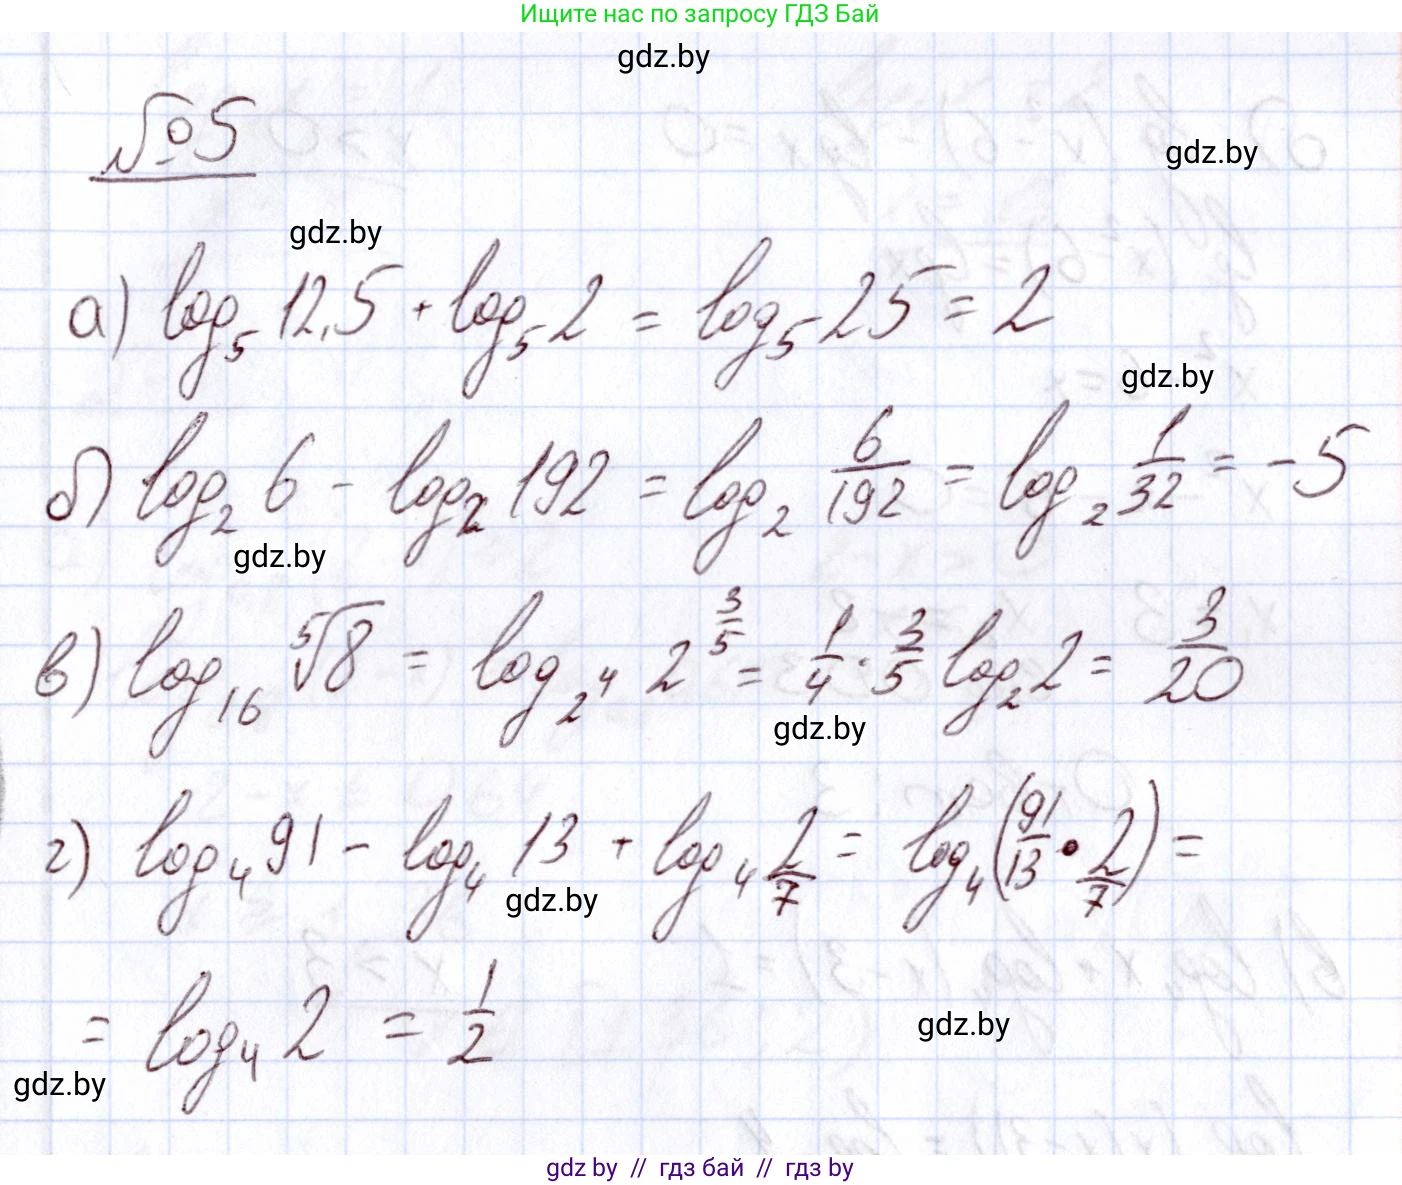 Ищите нас по запросу ГДЗ Бай
gdz.by
№5
gdz.by
gdz.by
а) log₅ 12,5 + log₅ 2 = log₅ 25 = 2
gdz.by
б) log₂ 6 - log₂ 192 = log₂ 6/192 = log₂ 1/32 = -5
gdz.by
в) log₁₆ ⁵√8 = log_{2^4} 2^{3/5} = 1/4 · 3/5 log₂ 2 = 3/20
gdz.by
г) log₄ 91 - log₄ 13 + log₄ 2/7 = log₄ (91/13 · 2/7) =
gdz.by
= log₄ 2 = 1/2
gdz.by
gdz.by
gdz by // гдз бай // гдз by